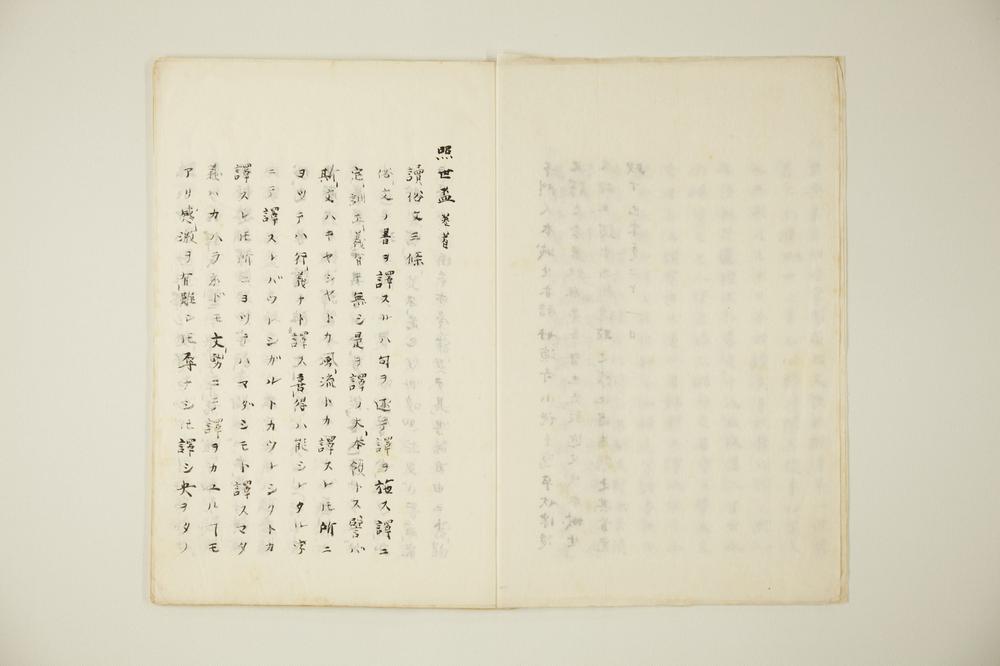 照世盃 巻首
讀俗文三條
俗文ノ書ヲ譯スルハ句ヲ逐テ譯ヲ施ス譯ニ
定訓正義有无無シ是ヲ譯ノ大本領トス譬バ
斯文ハキヤシヤトカ風流トカ譯スレ𪜈所ニ
ヨツテハ行義ナト譯ス舎得ハ能シレタル字
ニテ譯ストバウレシガルトカウレシクトカ
譯スレ𪜈所ニヨツテハマダシモト譯スマタ
義ハカハラネドモ文勢ニテ譯ヲカユルヿモ
アリ感激ヲ有難シ𪜈辱ナシ𪜈譯シ央ヲタノ